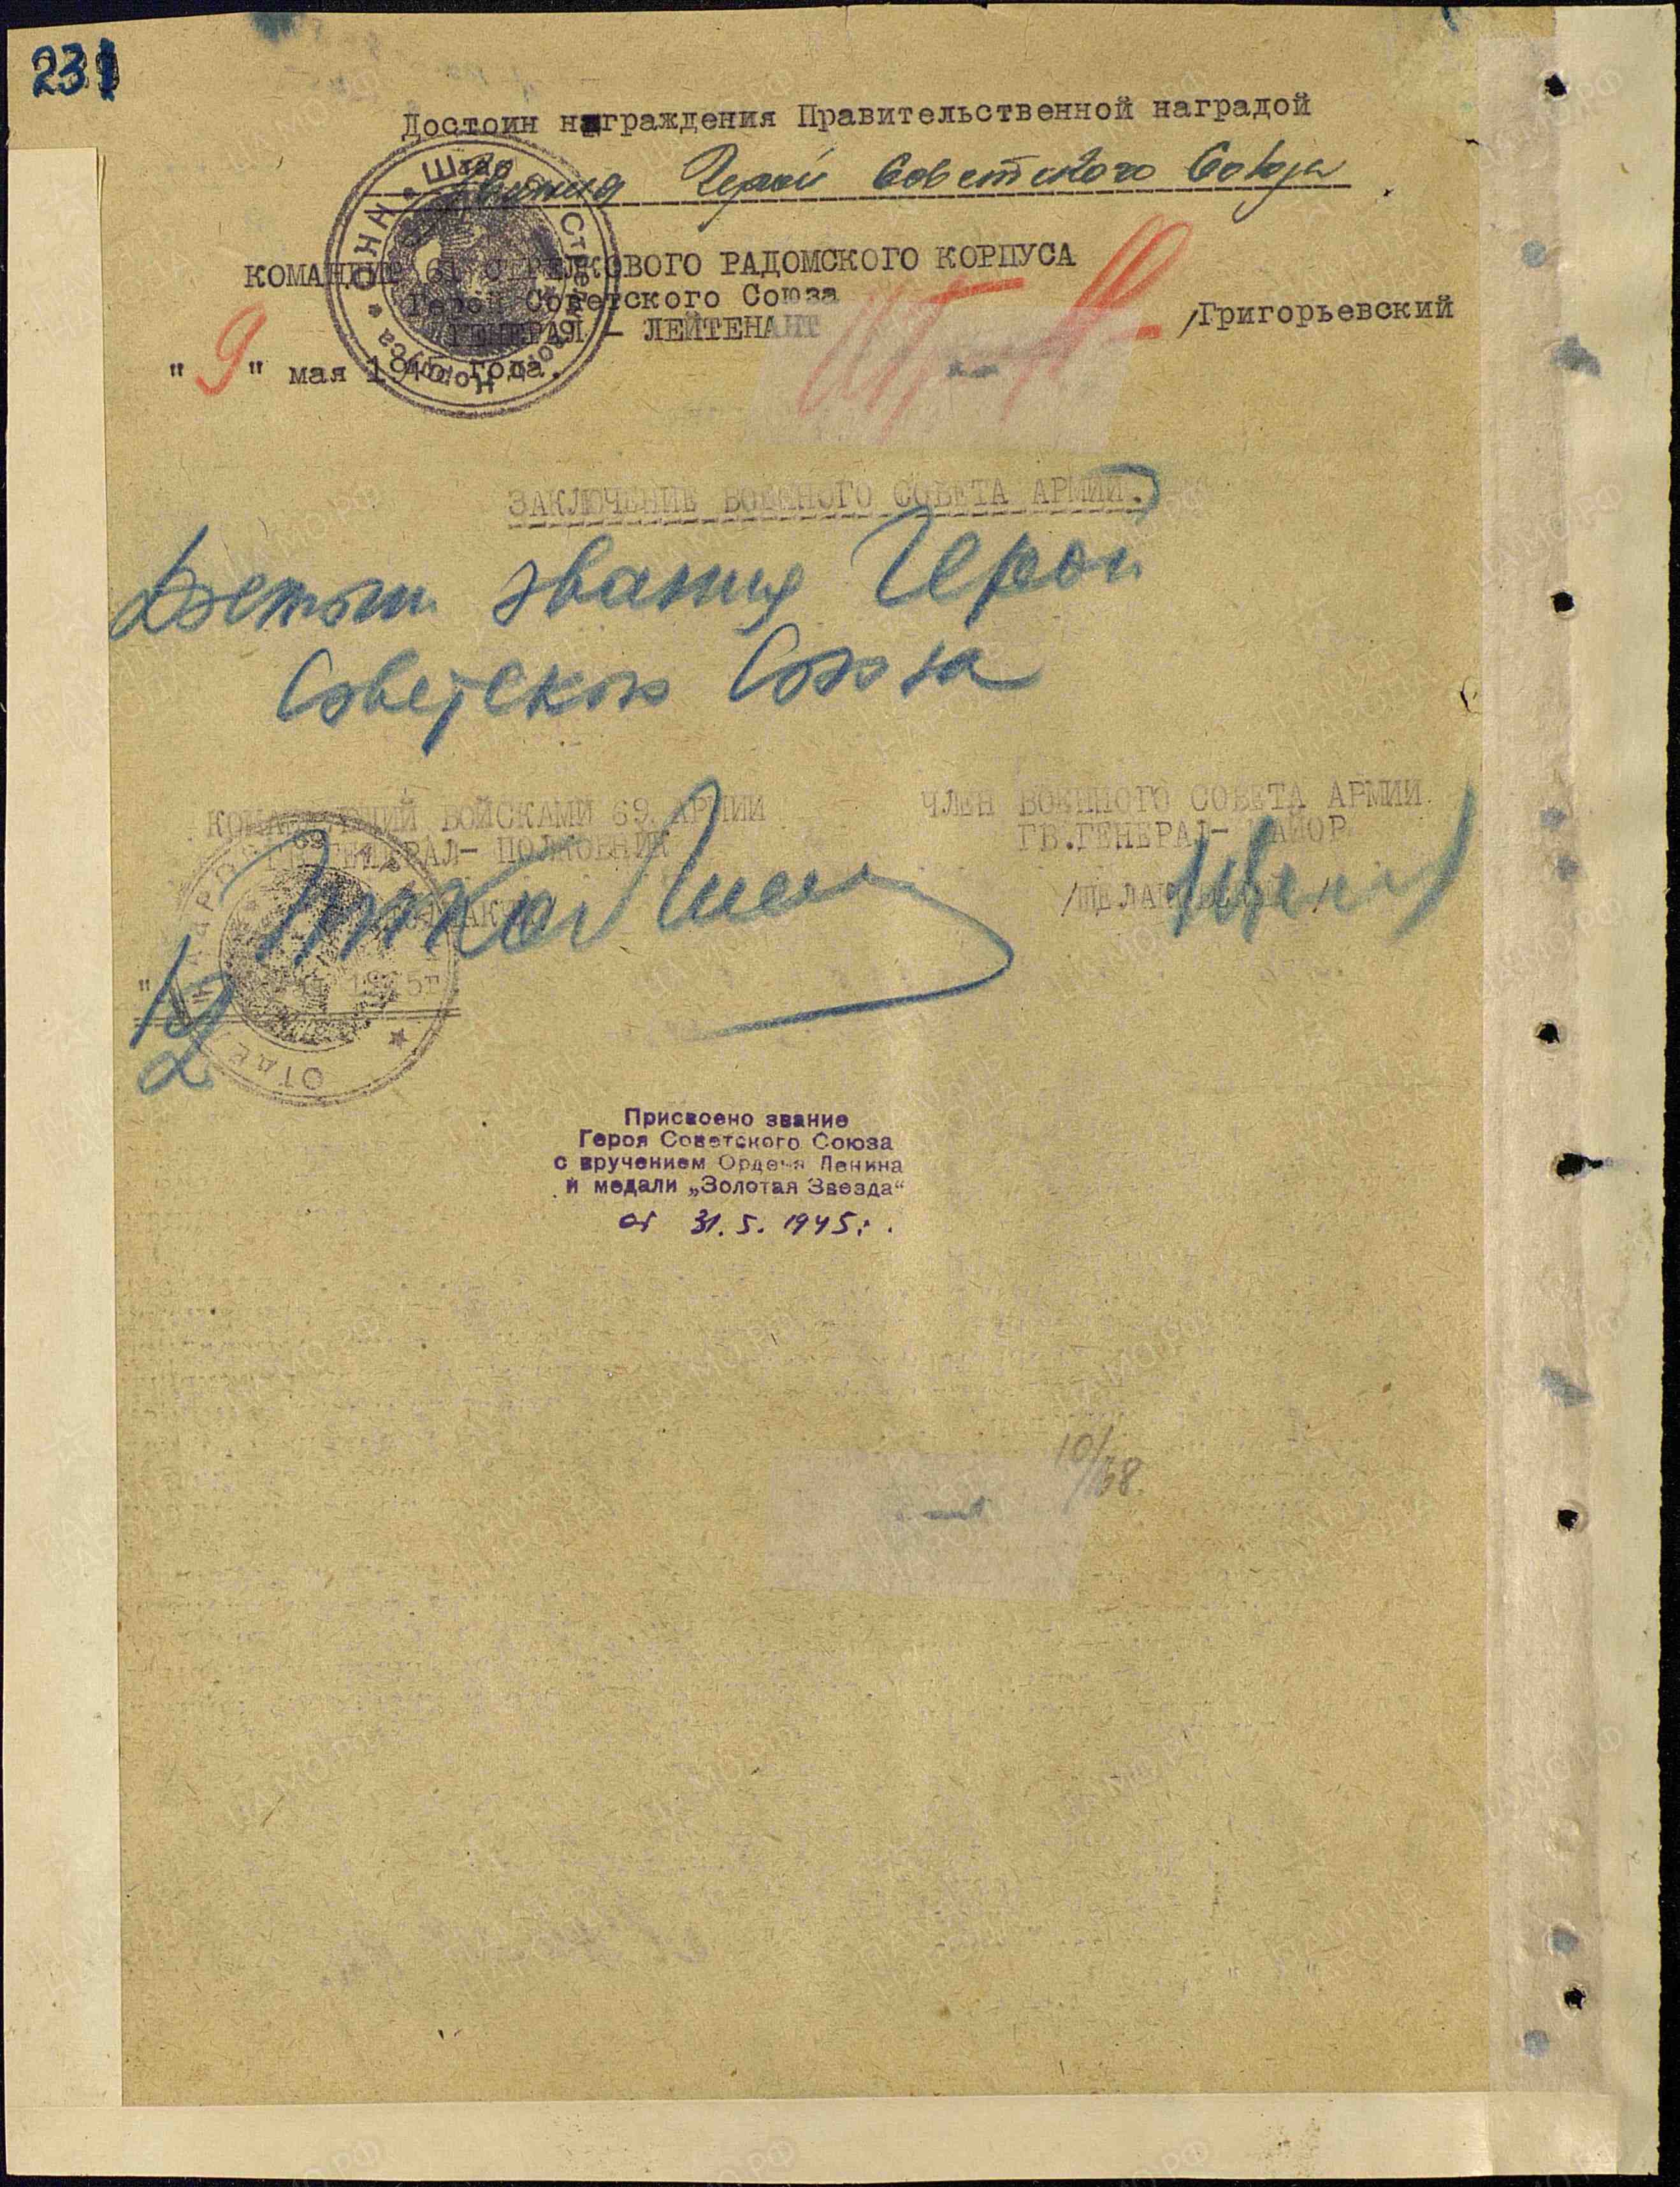 231
Достоин награждения Правительственной наградой
звания Герой Советского Союза.
КОМАНДИР 61 СТРЕЛКОВОГО РАДОМСКОГО КОРПУСА
Герой Советского Союза
ГЕНЕРАЛ - ЛЕЙТЕНАНТ /Григорьевский
"9" мая 1945 года.
ЗАКЛЮЧЕНИЕ ВОЕННОГО СОВЕТА АРМИИ.
Достоин звания Герой
Советского Союза
КОМАНДУЮЩИЙ ВОЙСКАМИ 69 АРМИИ
ГВ. ГЕНЕРАЛ- ПОЛКОВНИК
ЧЛЕН ВОЕННОГО СОВЕТА АРМИИ
ГВ.ГЕНЕРАЛ- МАЙОР
1945г
Присвоено звание
Героя Советского Союза
с вручением Ордена Ленина
и медали „Золотая Звезда"
от 31.5.1945г.
10/68.